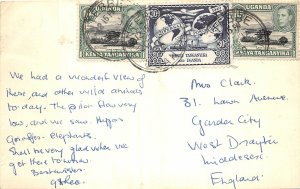 UGANDA
KENYA TANGANYIKA
KENYA TANGANYIKA
UGANDA
UGANDA
KENYA TANGANYIKA
We had a wonderful view of
these and other wild animals
to-day. The pilot flew very
low, and we saw Hippos
Giraffes - Elephants.
Shall be very glad when we
get there
Best wishes
Mrs Clark.
31. Lawn Avenue.
Garden City
West Drayton
Middlesex
England.